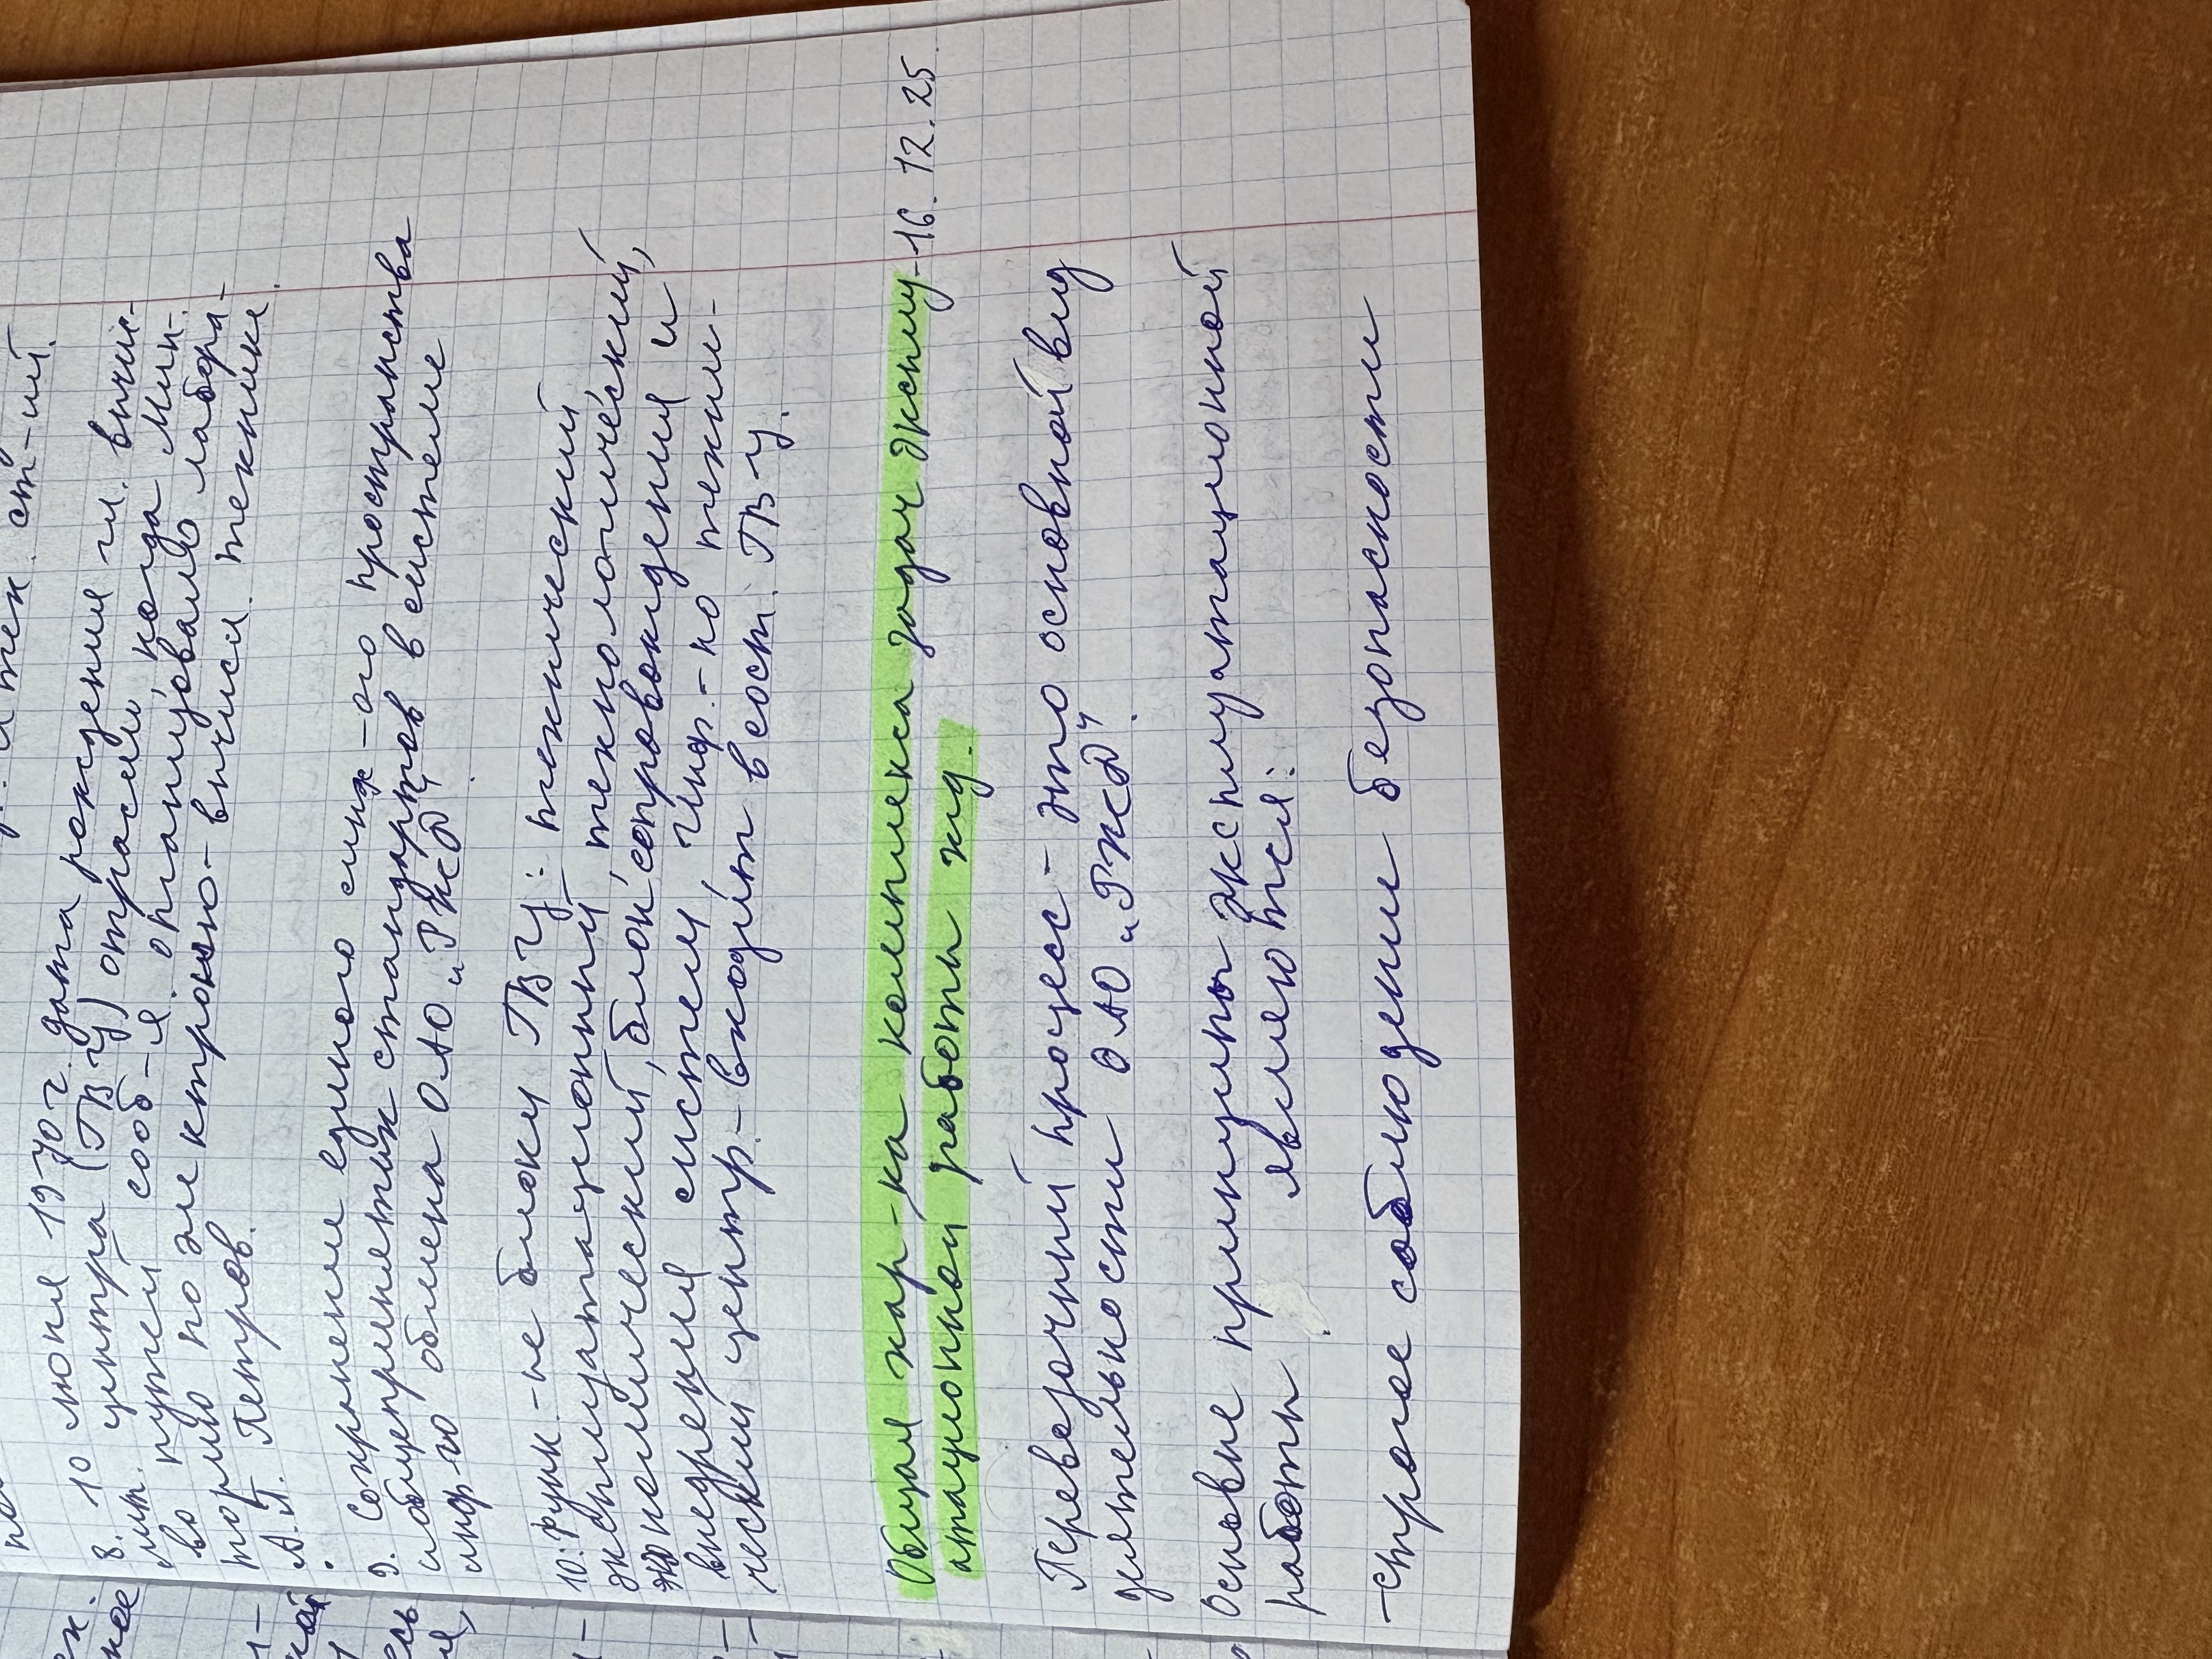 тех. ст-ий.
8. 10 июня 1970 г. дата рождения гл. вычис-
лит. центра (ГВЦ) отрасли, когда Мин.
во путей сооб-я. организовало лабора-
торию по электронно-вычисл. технике
А.П. Петров.
9. Сохранение единого инф-ого пространства
и общепринятых стандартов в системе
инф-го обмена ОАО „РЖД".
10. Функ.-ые блоки ГВЦ: технический
эксплуатационный, технологический,
экономический, блок сопровождения и
внедрения систем, Инф.-но техни-
ческий центр - входит в сост. ГВЦ.
Общая хар-ка комплекса задач эксплу- 16.12.25.
атационной работы жд.
Перевозочный процесс - это основной вид
деятельности ОАО „РЖД".
Основные принципы эксплуатационной
работы являются:
-строгое соблюдение безопасности